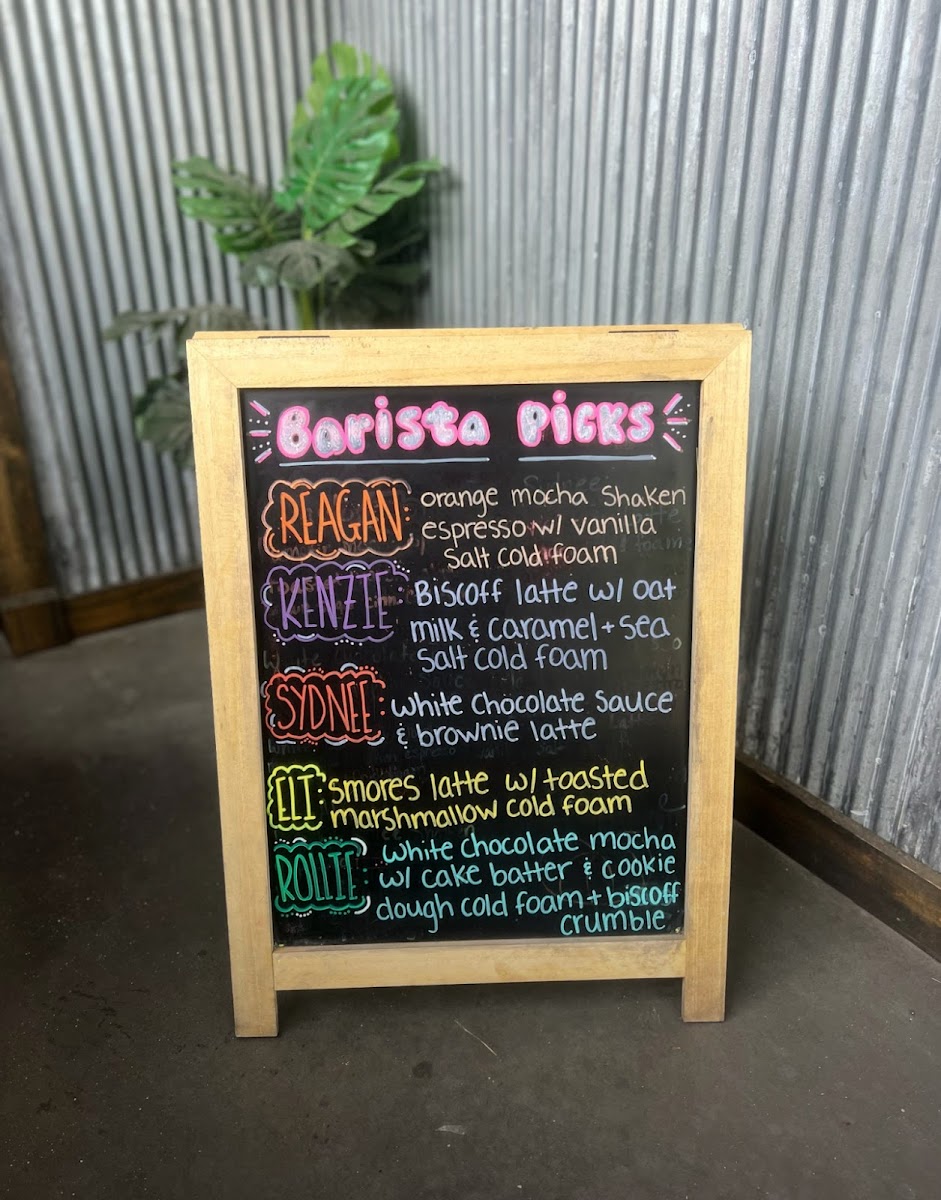 Barista Picks
REAGAN: orange mocha shaken
espresso w/ vanilla
salt cold foam
KENZIE: Biscoff latte w/ oat
milk & caramel + sea
salt cold foam
SYDNEE: white chocolate sauce
& brownie latte
ELI: smores latte w/ toasted
marshmallow cold foam
ROLLIE: white chocolate mocha
w/ cake batter & cookie
dough cold foam + biscoff
crumble